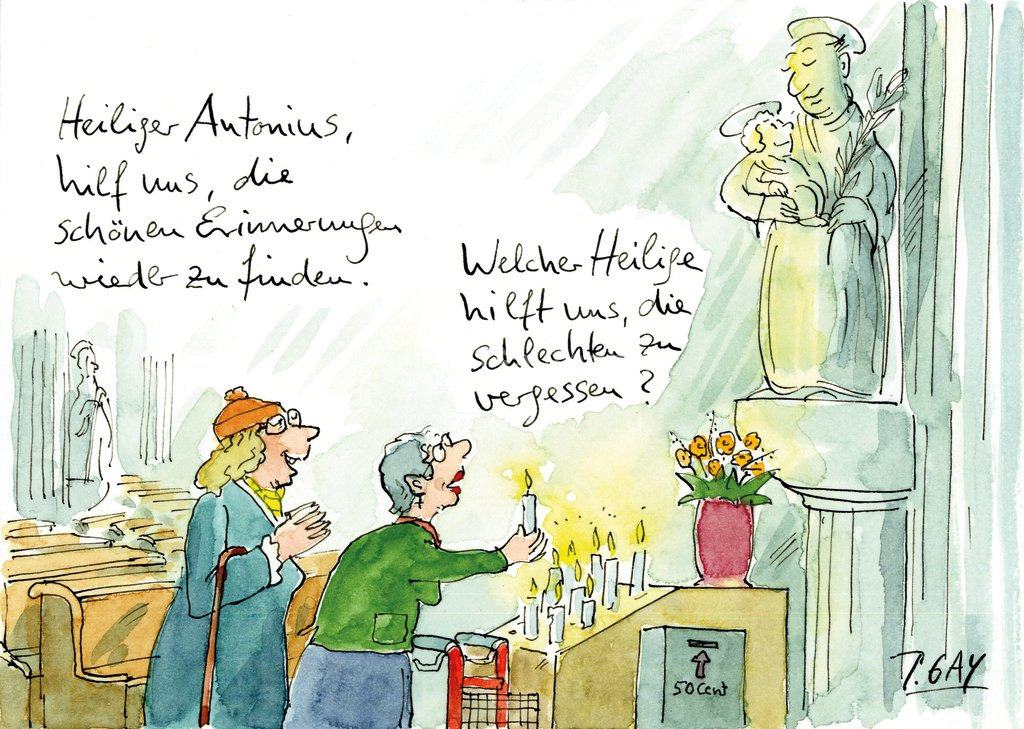 Heiliger Antonius,
hilf uns, die
schönen Erinnerungen
wieder zu finden.
Welcher Heilige
hilft uns, die
schlechten zu
vergessen?
50 Cent
T. GAY